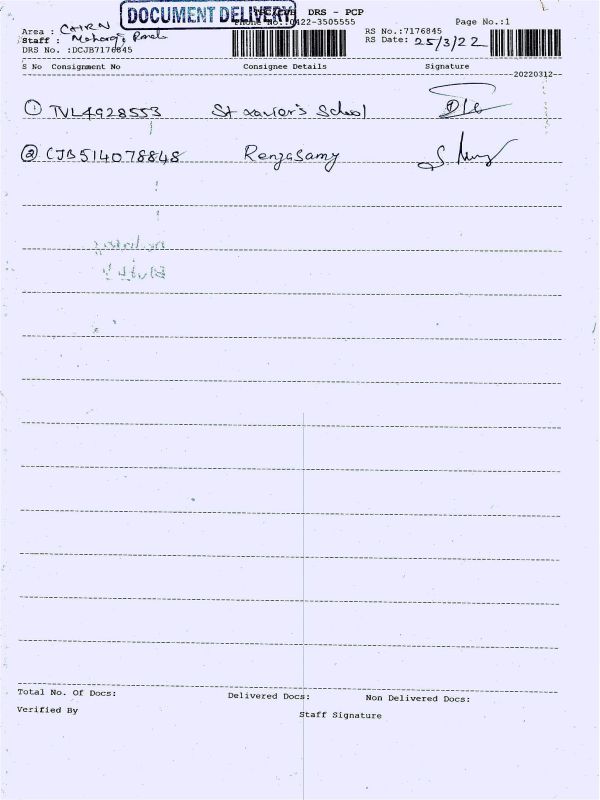 DOCUMENT DELIVERY
DRS - PCP
Page No.:1
Phone No.:0422-3505555
Area :
Staff :
DRS No. :DCJB7176845
RS No.:7176845
RS Date: 25/3/22
S No Consignment No Consignee Details Signature
--20220312--
① TVL4928553 St xavier's School
② CJB514078848 Rengasamy
Total No. Of Docs: Delivered Docs: Non Delivered Docs:
Verified By Staff Signature